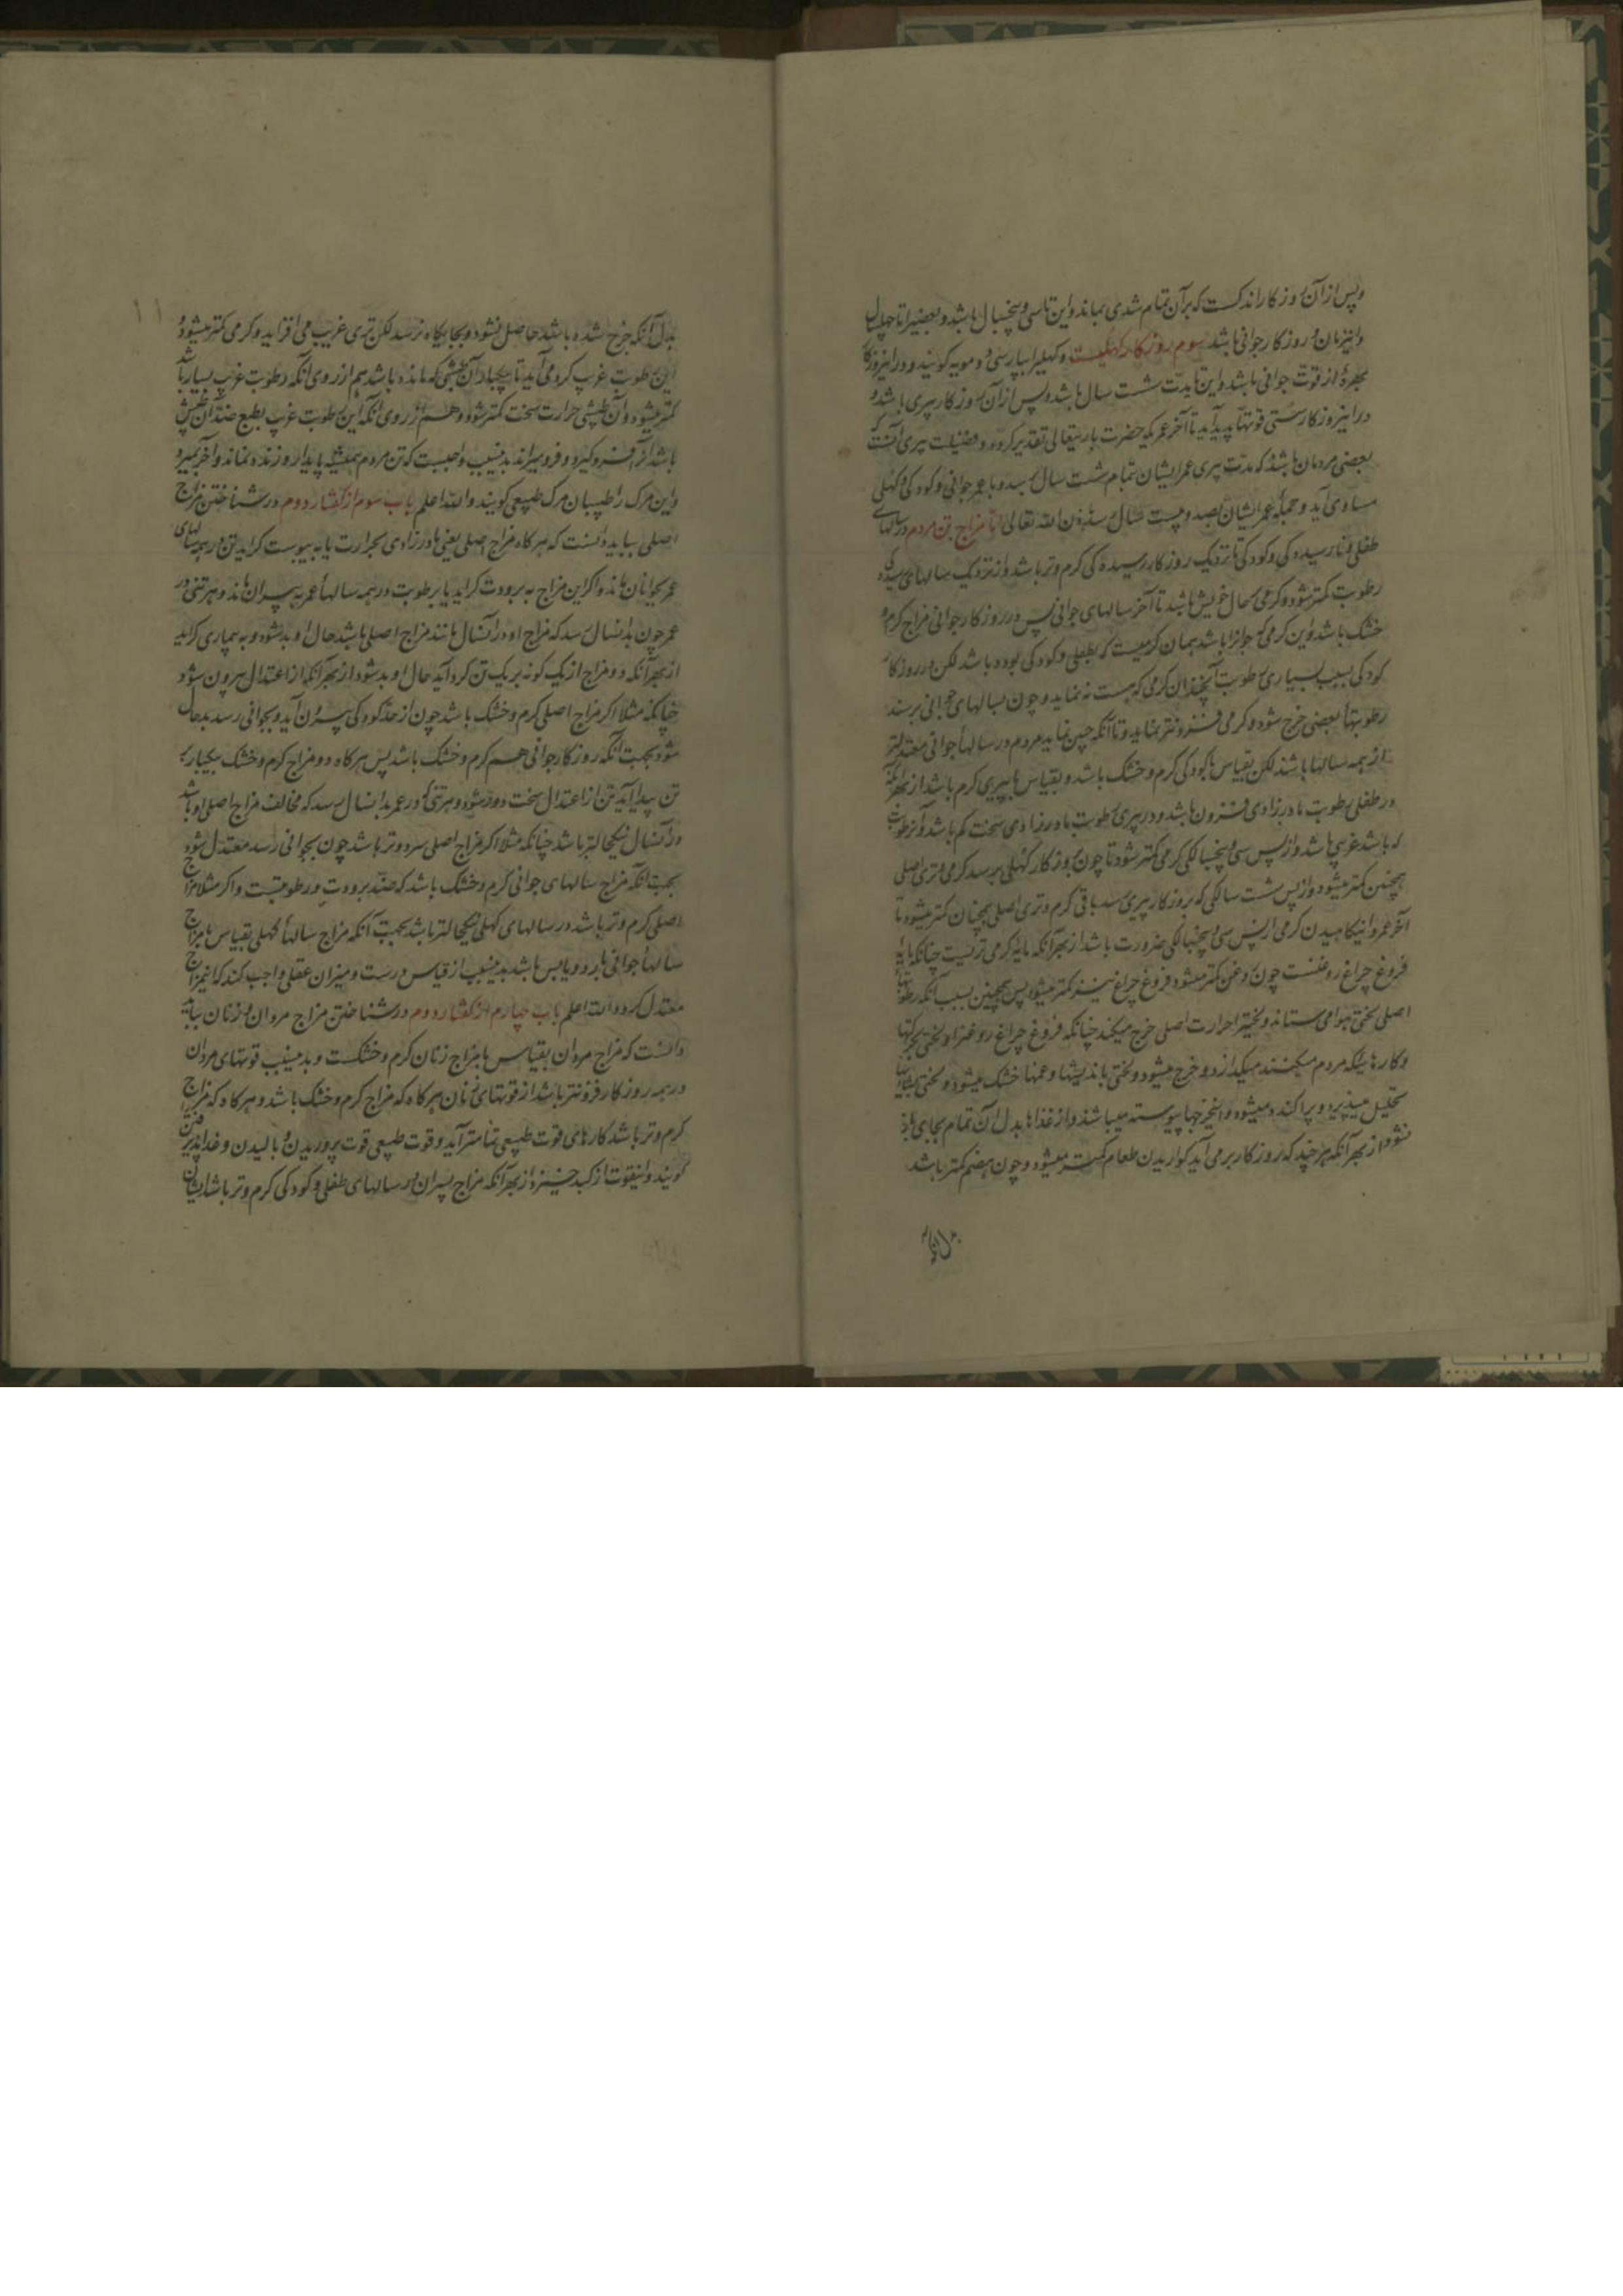 وپس از آن روزکار اندکست که برآن تمام شدی بماند واین تا سی وپنجسال باشد وبعضیرا تا چهلسال
واینزمان روزکار جوانی باشد سوم روزکار کهلیست وکهلیرا بپارسی دومویه کویند ودر اینروزکار
بهرهٔ از قوت جوانی باشد واین تا مدت شست سال باشد وپس از آن روزکار پیری باشد و
در اینروزکار سستی قوتها پدید آید تا آخر عمر که حضرت باریتعالی تقدیر کرده و فضیلت پیری آنست که
بعضی مردمان باشند که مدت پیری عمر ایشان تمام شست سال برسد و با عمر جوانی وکودکی وکهلی
مساوی آید و جملهٔ عمر ایشان بصد وبیست سال رسد باذن الله تعالی اما مزاج تن مردم در سالهای
طفلی ونارسیده کی وکودکی تا نزدیک روزکار رسیده کی کرم وتر باشد واز نزدیک سالهای رسیدکی
رطوبت کمتر شود وکرمی بحال خویش باشد تا آخر سالهای جوانی پس در روزکار جوانی مزاج کرم و
خشک باشد واین کرمی که جوانرا باشد همان کرمیست که بطفلی وکودکی بوده باشد لکن در روزکار
کودکی بسبب بسیاری رطوبت آنچندان کرمی که هست نه نماید وچون بسالهای جوانی برسند
رطوبتها بعضی خرج شود وکرمی فزونتر نماید وتا آنکه چنین نماید مردم در سالها جوانی معتدلتر
از همه سالها باشند لکن بقیاس با کودکی کرم وخشک باشد وبقیاس با پیری کرم باشد از بهر آنکه
در طفلی رطوبت مادرزادی فزون باشد ودر پیری رطوبت مادرزادی سخت کم باشد وآنرطوبت
که باشد غریب باشد واز پس سی وپنجسالکی کرمی کمتر شود تا چون بروزکار کهلی برسد کرمی وتری اصلی
همچنین کمتر میشود واز پس شست سالکی که بروزکار پیری رسد باقی کرم وتری اصلی همچنان کمتر میشود تا
آخر عمر واینکاهیدن کرمی از پس سی وپنجسالکی ضرورت باشد از بهر آنکه مایهٔ کرمی تریست چنانکه مایهٔ
فروغ چراغ روغنست چون روغن کمتر میشود فروغ چراغ نیز کمتر میشود پس همچنین بسبب آنکه رطوبتهای
اصلی لختی هوا می ستاند ولختیرا حرارت اصلی خرج میکند چنانکه فروغ چراغ روغنرا ولختی بحرکتها
وکارهائیکه مردم میکنند میکدازد و خرج میشود ولختی باندیشها وغمها خشک میشود ولختی
تحلیل میپذیرد و پراکنده میشود واینخرجها پیوسته میباشد واز غذاها بدل آن تمام بجای باز
نشود از بهر آنکه هر چند که روزکار بر می آید کواریدن طعام کمتر میشود وچون هضم کمتر باشد
بدل آنکه
۱۱
بدل آنکه خرج شده باشد حاصل نشود وبجایکاه نرسد لکن تری غریب می افزاید وکرمی کمتر میشود و
این رطوبت غریب کرد می آید تا بیکبار آن طپشی که مانده باشد هم از روی آنکه رطوبت غریب بسیار باشد
کمتر میشود وآن طپشی حرارت سخت کمتر شود وهم از روی آنکه این رطوبت غریب بطبع ضد آن طپش
باشد آنرا فروکیرد وفرومیراند بدینسبب واجبست که تن مردم همیشه پایدار وزنده نماند وآخر بمیرد
واین مرک را طبیبان مرک طبیعی کویند والله اعلم باب سوم از کفتار دوم در شناختن مزاج
اصلی بباید دانست که هر کاه مزاج اصلی یعنی مادرزادی بحرارت یا به یبوست کراید تن در همه سالهای
عمر بجوانان ماند واکر این مزاج به برودت کراید یا برطوبت در همه سالها عمر به پیران ماند وهر تنی در
عمر چون بدانسال رسد که مزاج او در آنسال مانند مزاج اصلی باشد حال او بد شود وبه بیماری کراید
از بهر آنکه دو مزاج از یک کونه بر یک تن کرد آید حال او بد شود از بهر آنکه از اعتدال بیرون شود
چنانکه مثلا اکر مزاج اصلی کرم وخشک باشد چون از حد کودکی بیرون آید وبجوانی رسد بدحال
شود بجهت آنکه روزکار جوانی هم کرم وخشک باشد پس هر کاه دو مزاج کرم وخشک بیکبار
تن پیدا آید تن از اعتدال سخت دور شود وهر تنی که در عمر بدانسال رسد که مخالف مزاج اصلی او باشد
در آنسال نیکحالتر باشد چنانکه مثلا اکر مزاج اصلی سرد وتر باشد چون بجوانی رسد معتدل شود
بجهت آنکه مزاج سالهای جوانی کرم وخشک باشد که ضد برودت ورطوبتست واکر مثلا مزاج
اصلی کرم وتر باشد در سالهای کهلی نیکحالتر باشد بجهت آنکه مزاج سالها کهلی بقیاس با مزاج
سالها جوانی بارد ویابس باشد بدینسبب از قیاس درست ومیزان عقلی واجب کند که اینمزاج
معتدل کردد والله اعلم باب چهارم از کفتار دوم در شناختن مزاج مردان وزنان بباید
دانست که مزاج مردان بقیاس با مزاج زنان کرم وخشکست وبدینسبب قوتهای مردان
در همه روزکار فزونتر باشد از قوتهای زنان هر کاه که مزاج کرم وخشک باشد وهر کاه که مزاج
کرم وتر باشد کارهای قوت طبیعی تمامتر آید وقوت طبیعی قوت پروریدن وبالیدن وغذا پذیرفتن
کویند واینقوت از کبد خیزد از بهر آنکه مزاج پسران در سالهای طفلی وکودکی کرم وتر باشد ایشان